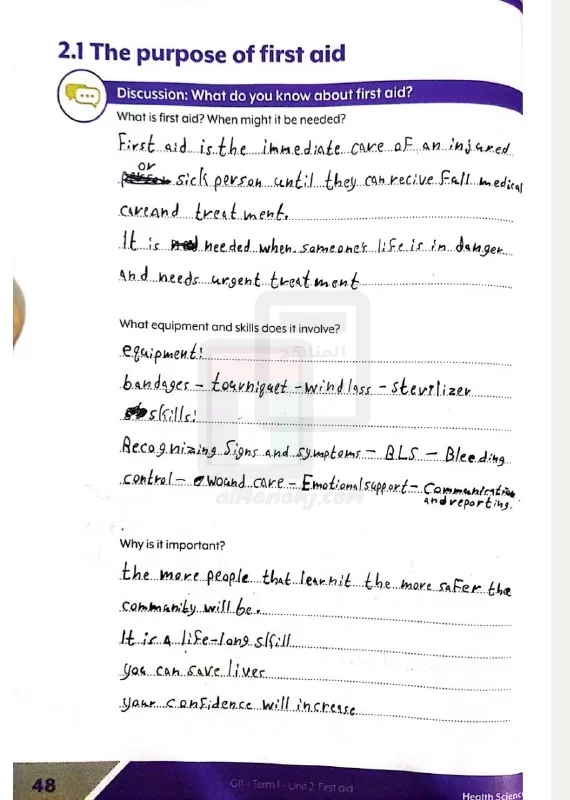 2.1 The purpose of first aid
Discussion: What do you know about first aid?
What is first aid? When might it be needed?
First aid is the immediate care of an injured
or
sick person until they can recive full medical
care and treatment.
It is needed when someone's life is in danger
and needs urgent treatment
What equipment and skills does it involve?
equipment:
bandages - tourniquet - windlass - sterilizer
skills:
Recognizing signs and symptoms - BLS - Bleeding
control - wound care - Emotional support - Communication
and reporting.
Why is it important?
the more people that learn it the more safer the
community will be.
It is a life-long skill
you can save lives
your confidence will increase
المناهج
almanahj.com
48
G11 - Term 1 - Unit 2: First aid
Health Scienc